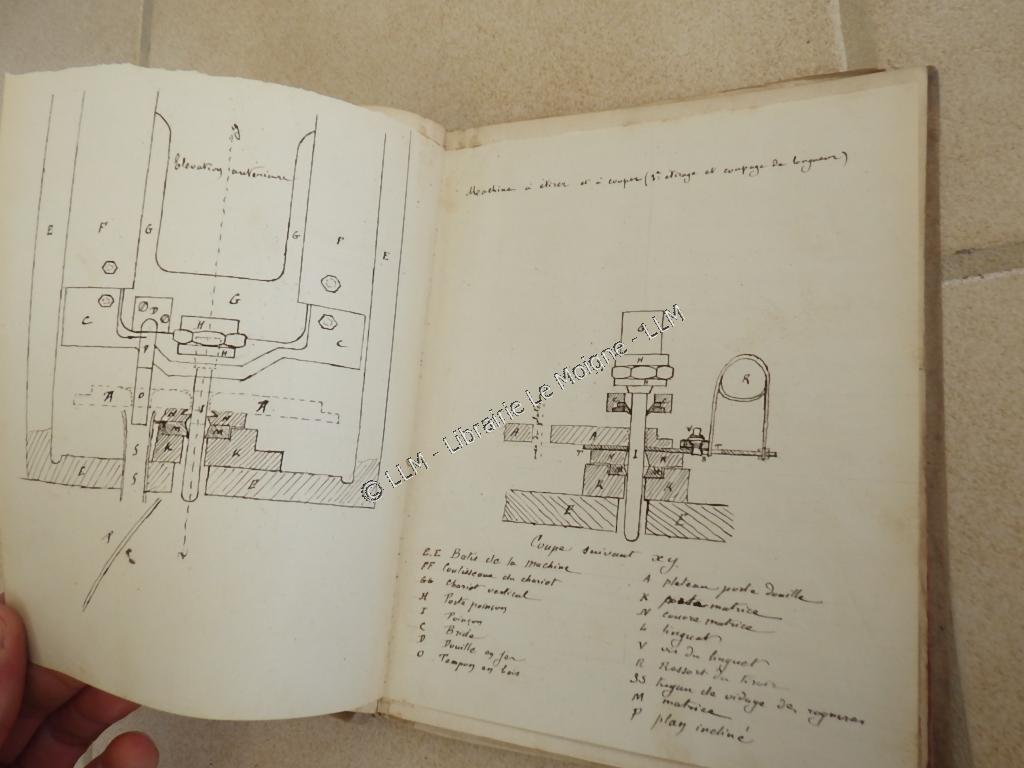 Elévation antérieure
y
E
F
G
G
F
E
G
C
D
H
H
C
P
O
A
A
N
N
M
M
K
K
S
S
E
E
P
Machine à étirer et à couper (3e étirage et coupage de longueur)
G
H
R
A
A
V
T
T
I
N
N
M
M
K
K
E
E
Coupe suivant xy.
E.E Batis de la machine
FF Coulisseaux du chariot
GG Chariot vertical
H Porte poinçon
I Poinçon
C Bride
D Douille en fer
O Tampon en bois
A plateau porte douille
K porte matrice
N couvre matrice
L linguet
V vis du linguet
R Ressort du tiroir
SS tuyau de vidage des rognures
M matrice
P plan incliné
© LLM - Librairie Le Moigne - LLM